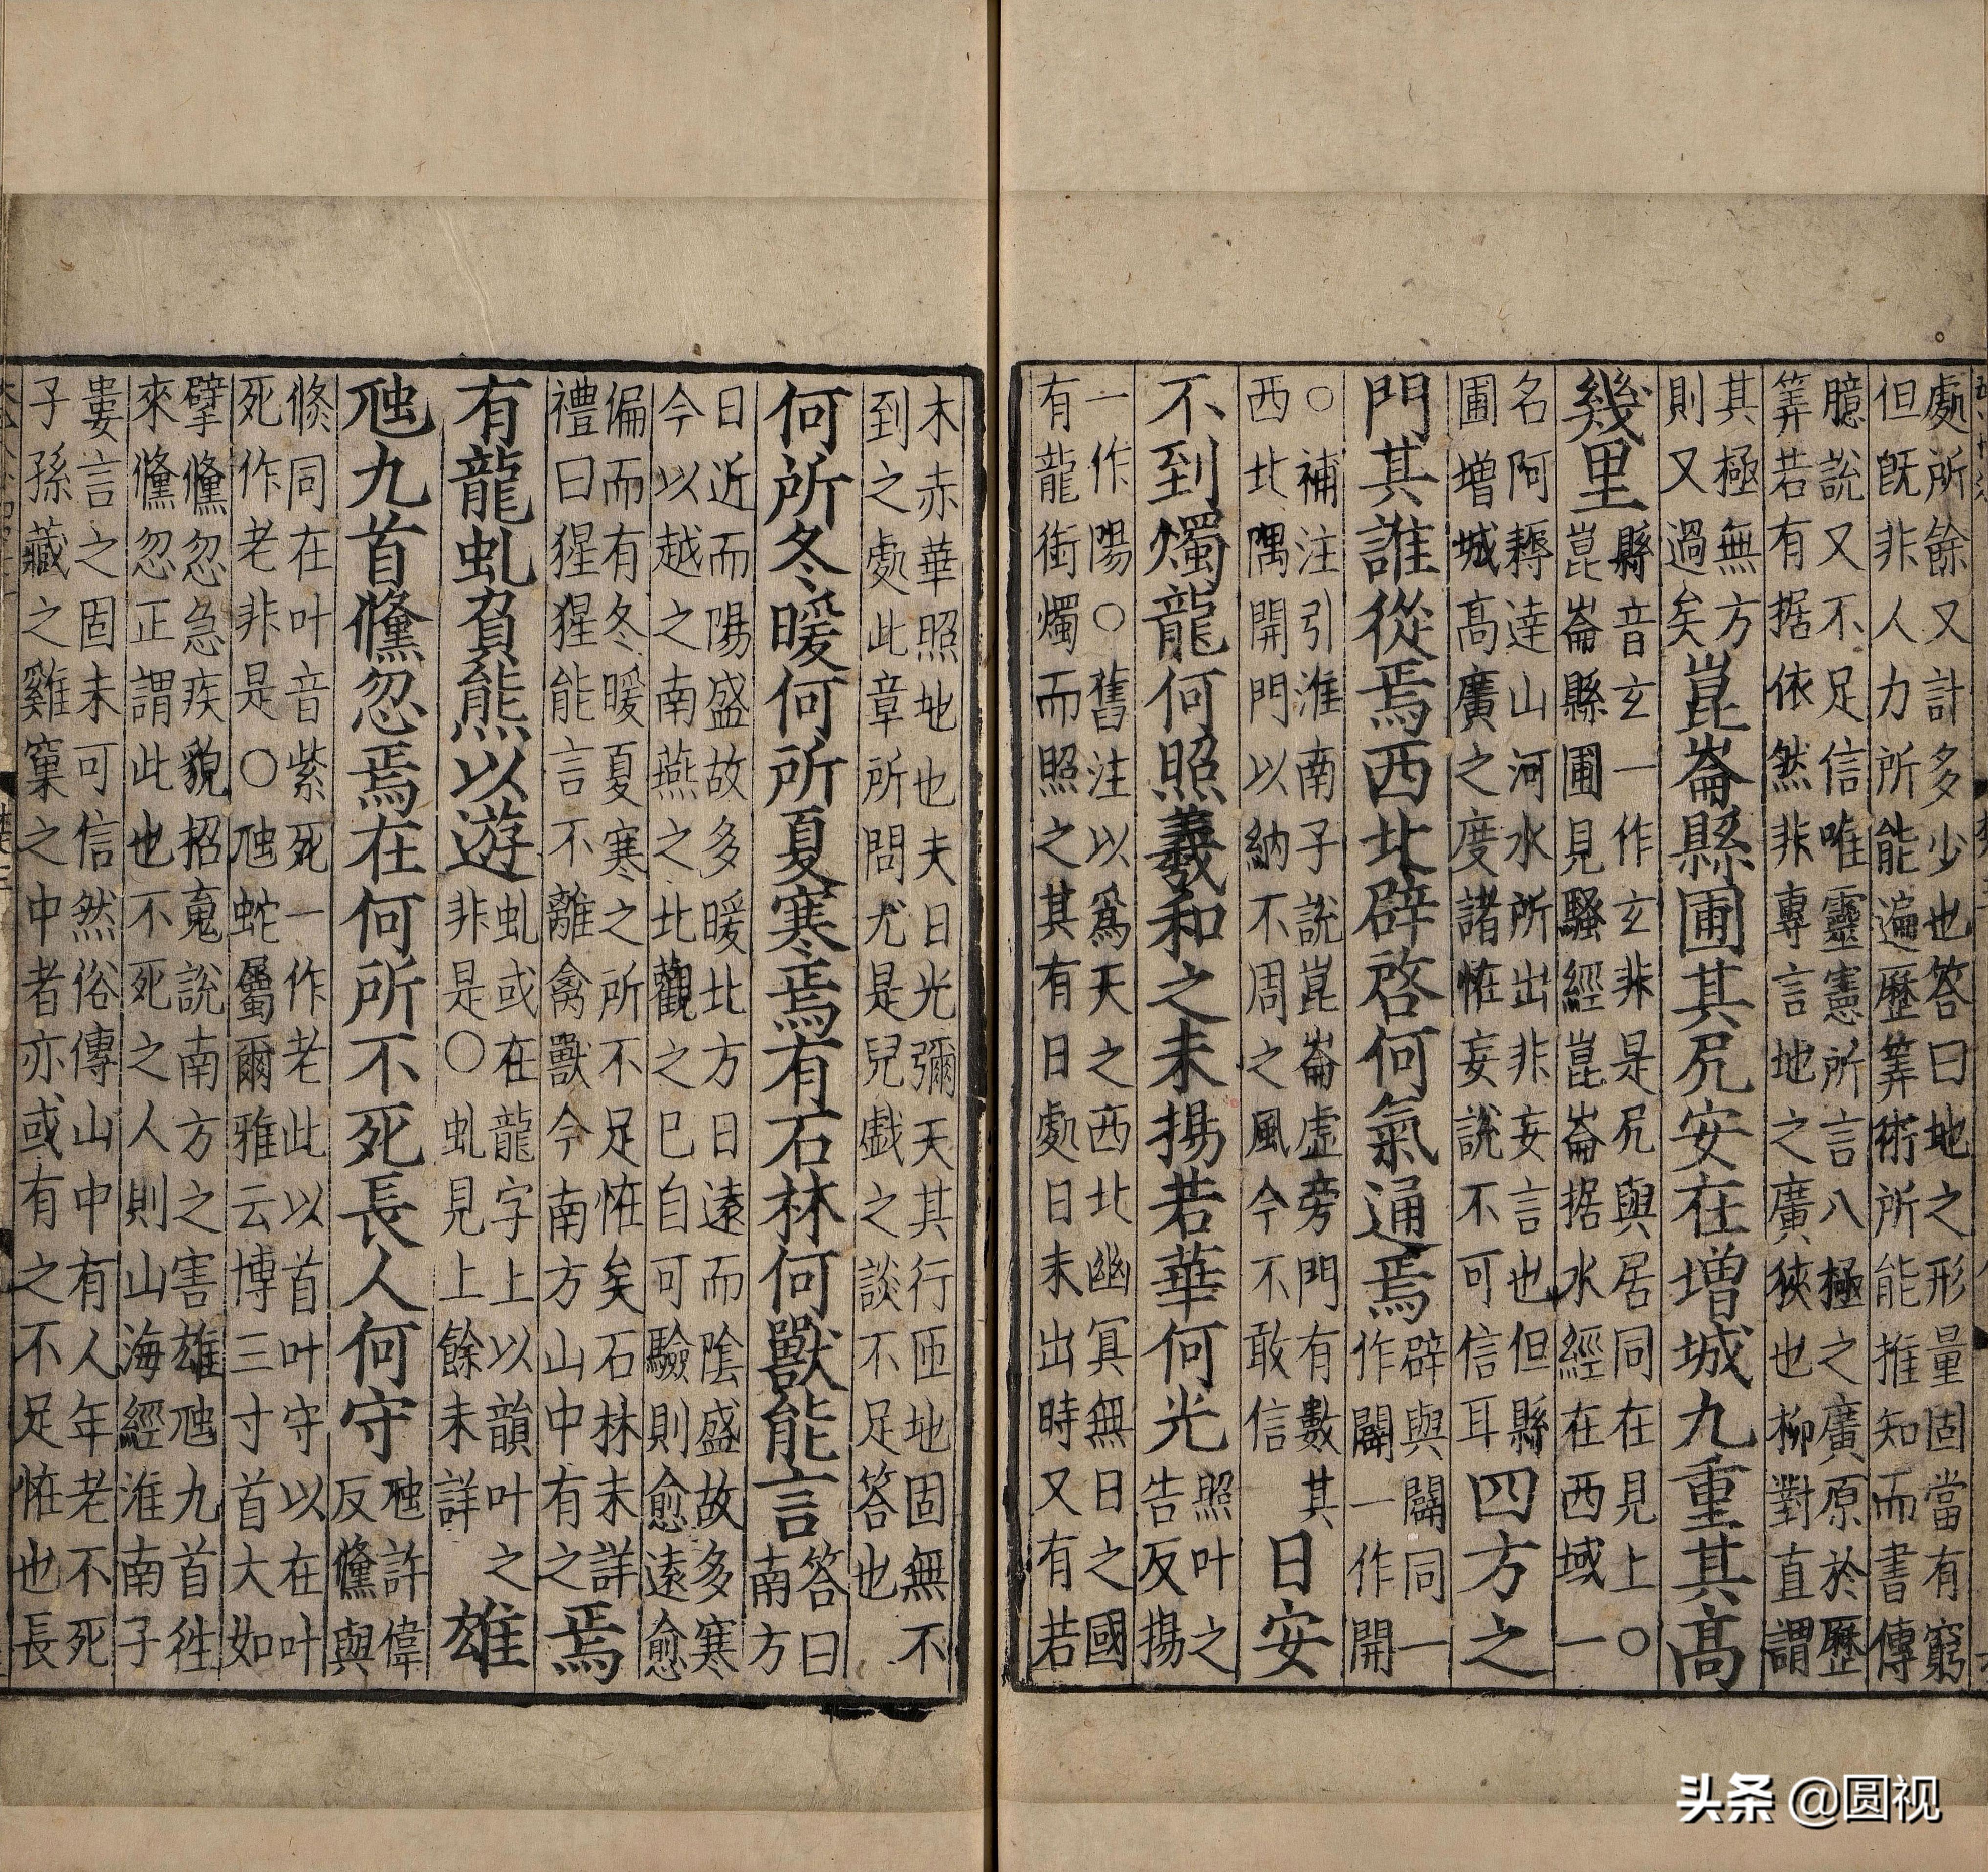 處所餘又計多少也答曰地之形量固當有窮
但旣非人力所能遍歷筭術所能推知而書傳
臆說又不足信唯靈憲所言八極之廣原於歷
筭若有据依然非專言地之廣狹也柳對直謂
其極無方
則又過矣
崑崙縣圃其凥安在增城九重其高
幾里
縣音玄一作玄非是凥與居同在見上○
崑崙縣圃見騷經崑崙据水經在西域一
名阿耨達山河水所出非妄言也但縣
圃增城高廣之度諸恠妄說不可信耳
四方之
門其誰從焉西北辟啓何氣通焉
辟與闢同一
作闢一作開
○補注引淮南子說崑崙虛旁門有數其
西北隅開門以納不周之風今不敢信
日安
不到燭龍何照羲和之未揚若華何光
照叶之
告反揚
一作陽○舊注以爲天之西北幽冥無日之國
有龍銜燭而照之其有日處日未出時又有若
木赤華照地也夫日光彌天其行匝地固無不
到之處此章所問尤是兒戱之談不足答也
何所冬暖何所夏寒焉有石林何獸能言
答曰
南方
日近而陽盛故多暖北方日遠而陰盛故多寒
今以越之南燕之北觀之已自可驗則愈遠愈
偏而有冬暖夏寒之所不足恠矣石林未詳
禮曰猩猩能言不離禽獸今南方山中有之
焉
有龍虬負熊以遊
虬或在龍字上以韻叶之
非是○虬見上餘未詳
雄
虺九首儵忽焉在何所不死長人何守
虺許偉
反儵與
倏同在叶音紫死一作老此以首叶守以在叶
死作老非是○虺蛇屬爾雅云博三寸首大如
擘儵忽急疾貌招䰟說南方之害雄虺九首徃
來儵忽正謂此也不死之人則山海經淮南子
婁言之固未可信然俗傳山中有人年老不死
子孫藏之雞窠之中者亦或有之不足恠也長
头条 @圆视